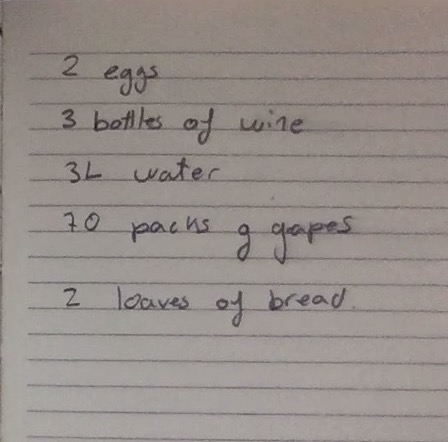 2 eggs
3 bottles of wine
3L water
70 packs g gapes
2 loaves of bread.